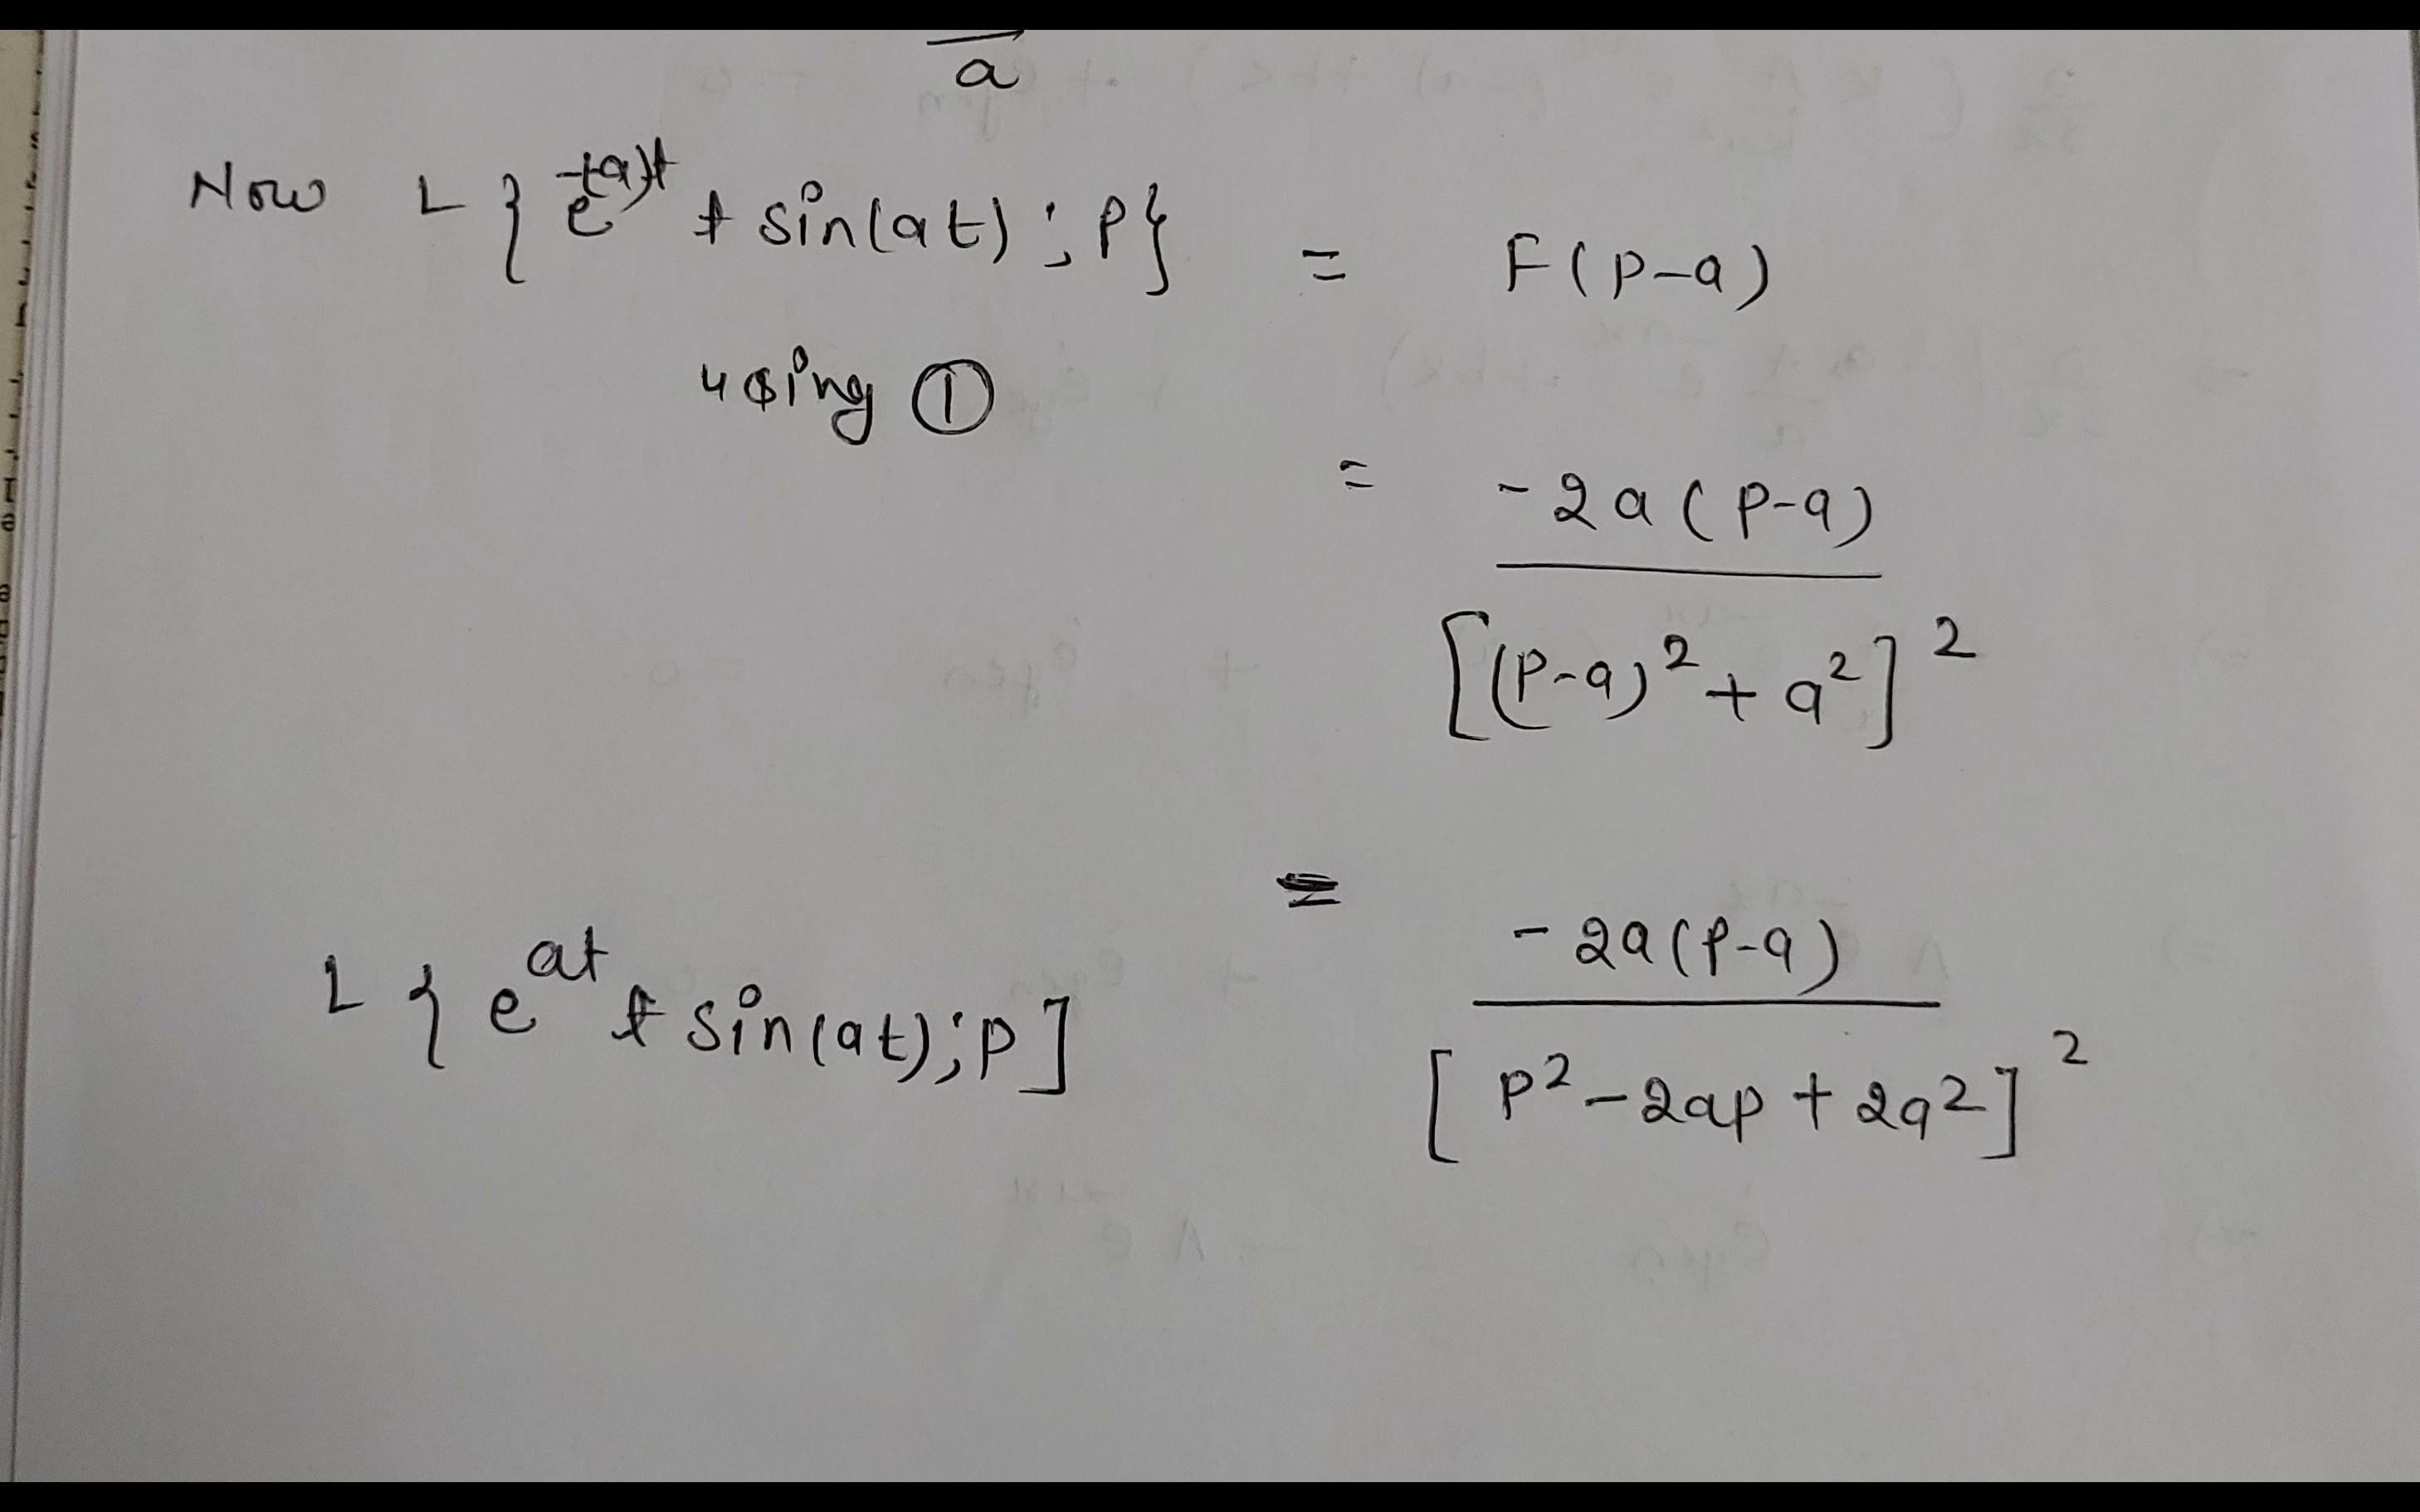 a
Now L{e^-(-a)t t sin(at); p} = F(p-a)
using ①
= -2a(p-a)
[(p-a)² + a²]²
=
-2a(p-a)
L{e^at t sin(at); p]
[p² - 2ap + 2a²]²